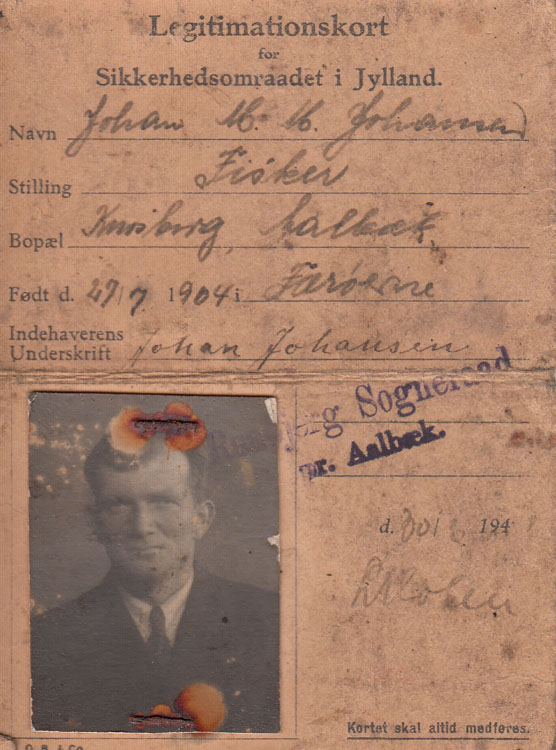 Legitimationskort
for
Sikkerhedsomraadet i Jylland.
Navn Johan M. M. Johansen
Stilling Fisker
Bopæl Aalbæk
Født d. 29/7 1904 i Færøerne
Indehaverens
Underskrift Johan Johansen
Sogneraad
pr. Aalbæk.
d. 194
Kortet skal altid medføres.